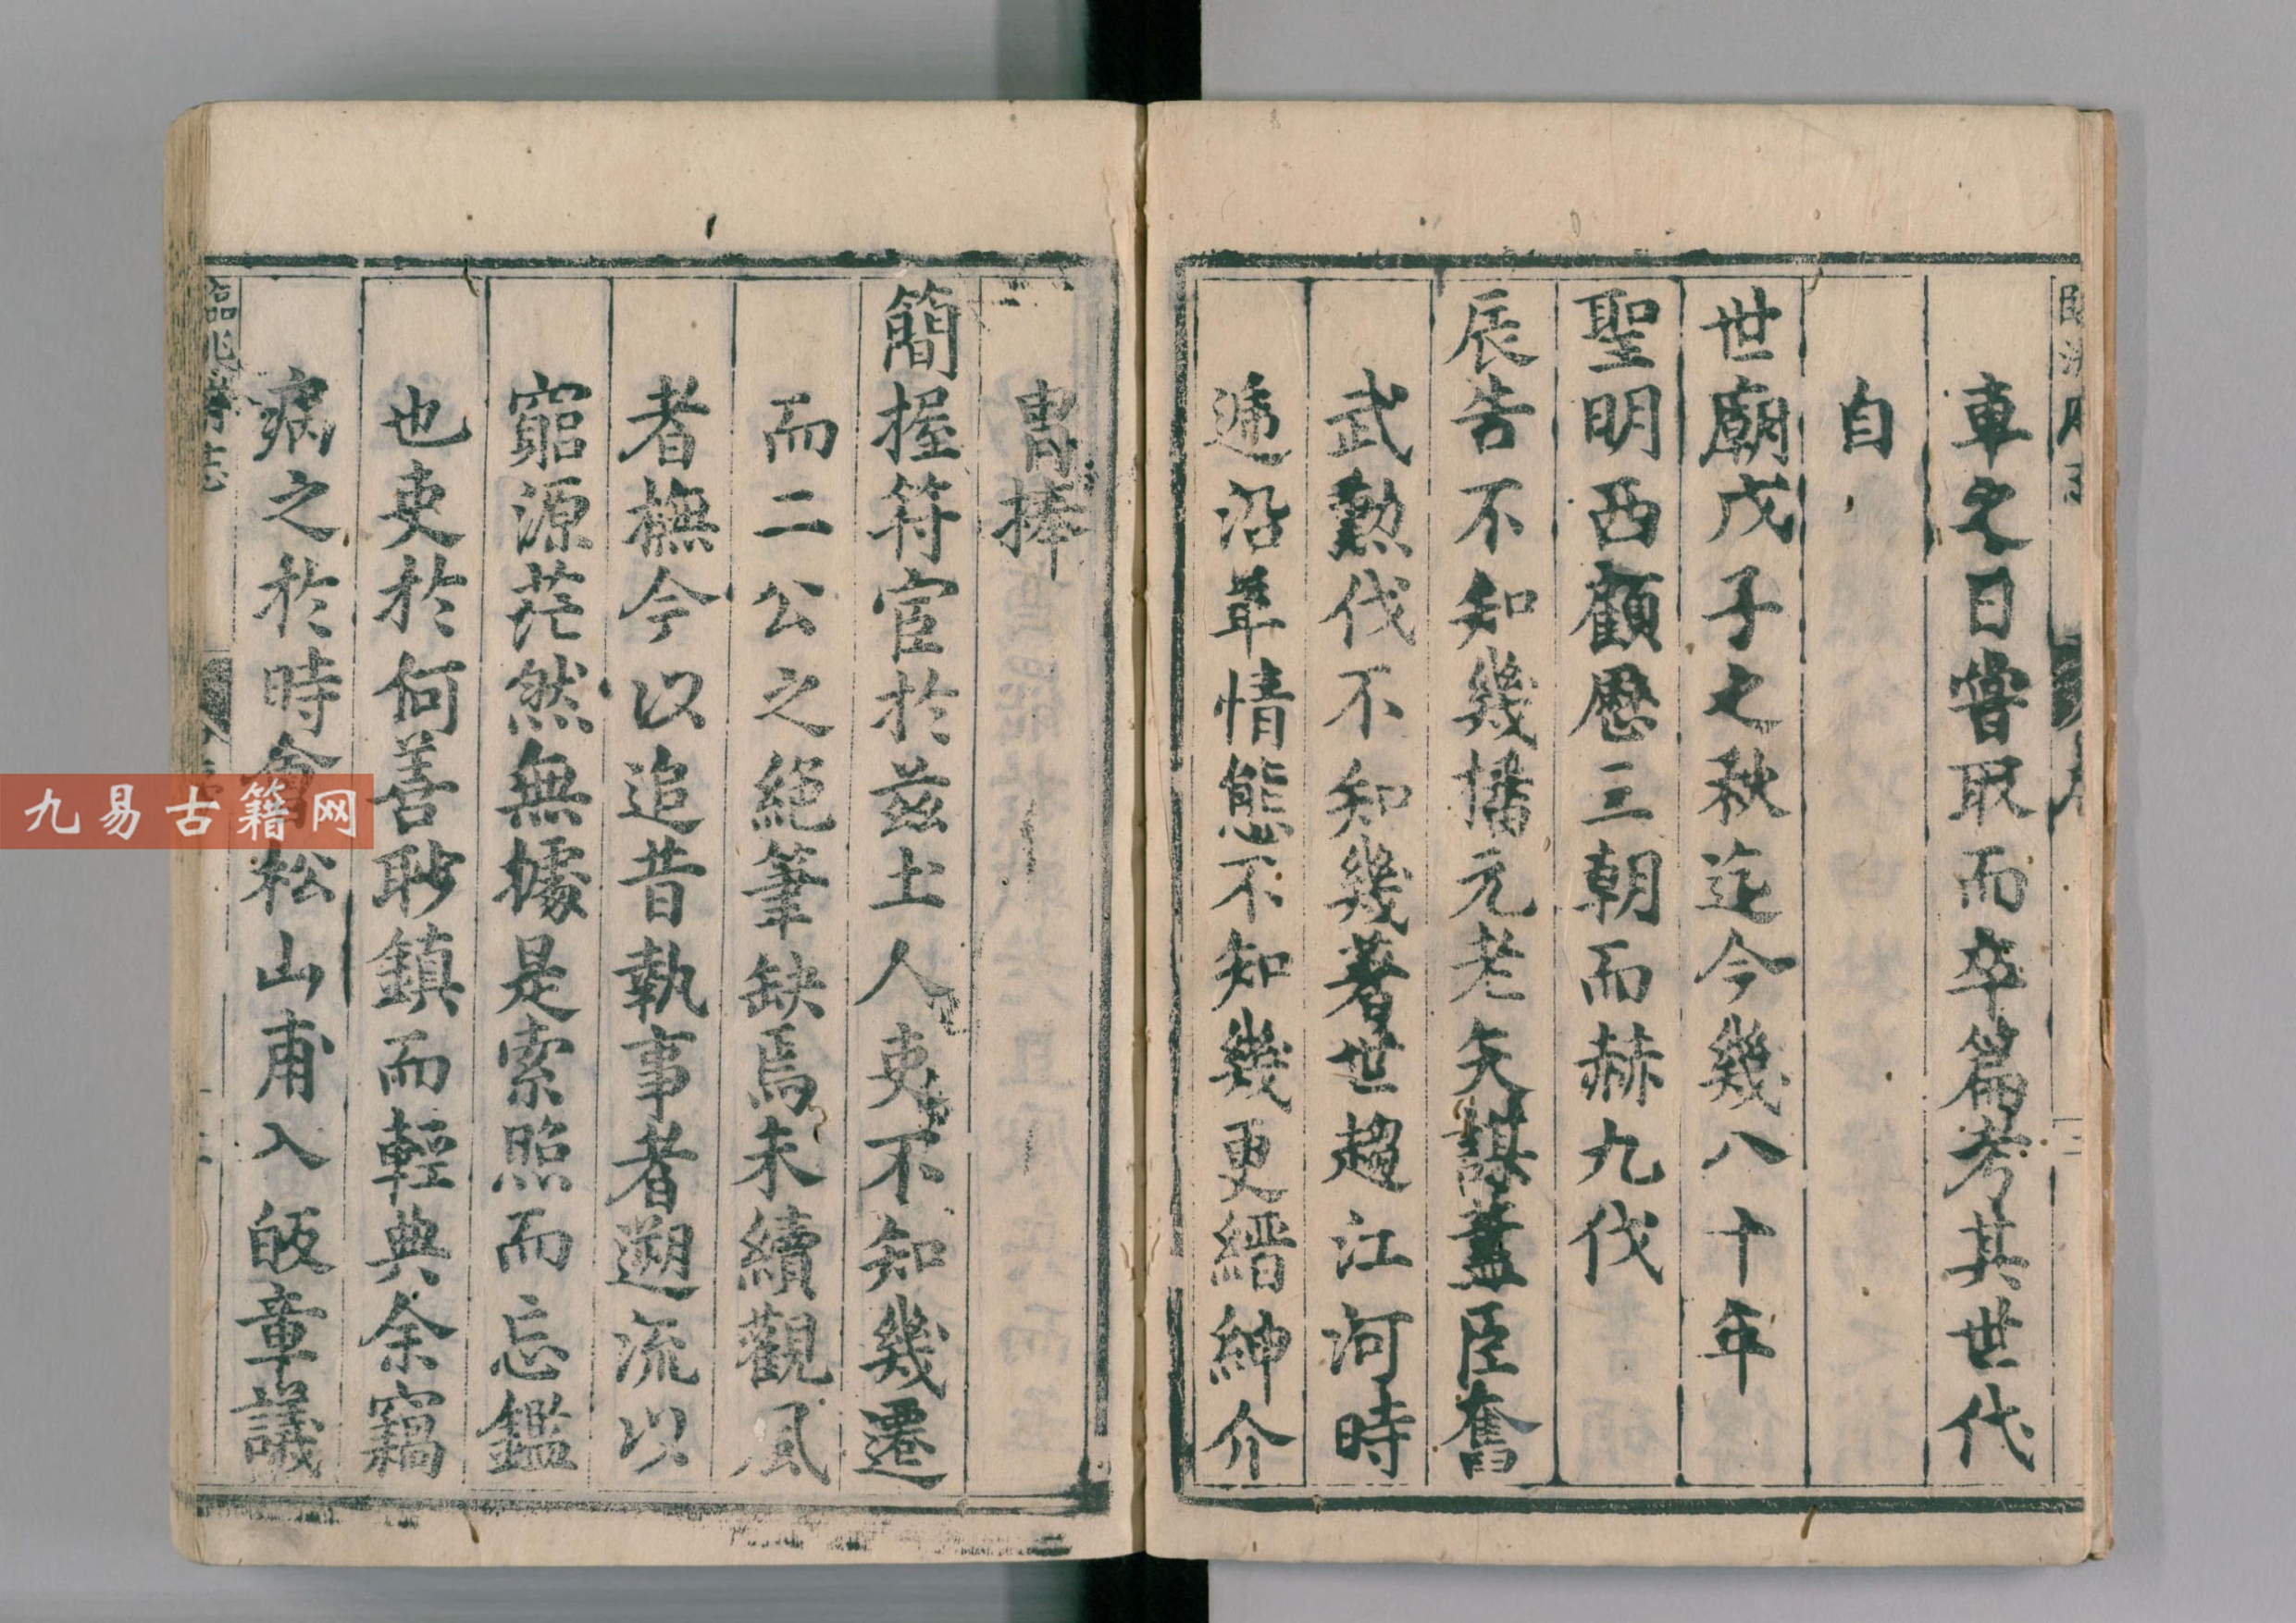 車之日嘗取而卒篇考其世代
自
世廟戊子之秋迄今幾八十年
聖明西顧歷三朝而赫九伐
辰告不知幾播元老矢謨藎臣奮
武勲伐不知幾著世趨江河時
遞沿革情態不知幾更縉紳介
冑捧
簡握符官於兹土人吏不知幾遷
而二公之絕筆缺焉未續觀風
者撫今以追昔執事者遡流以
窮源茫然無據是索照而忘鑑
也吏於何善聆鎮而輕典余竊
病之於時會松山甫入皈章議
九易古籍网